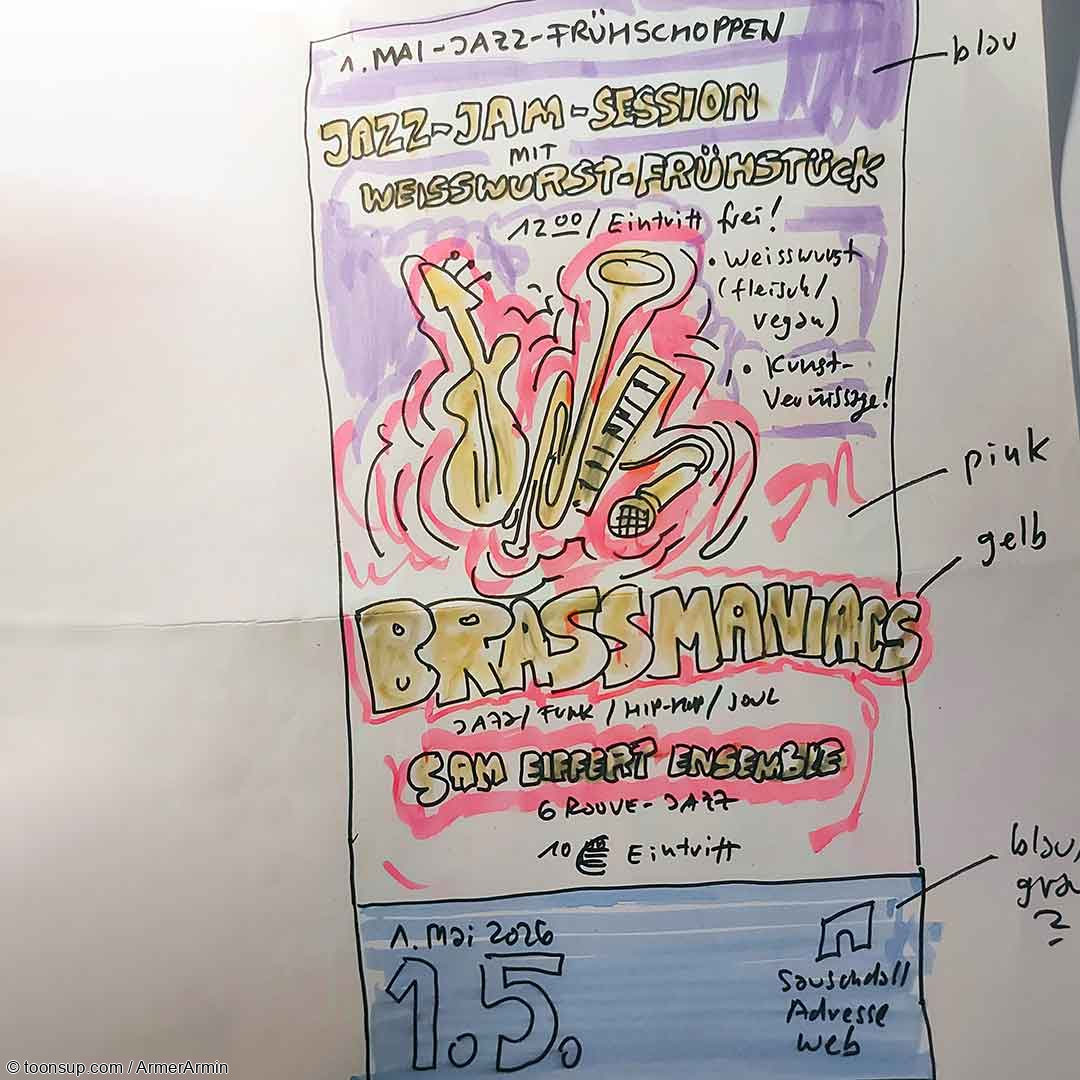 1. MAI-JAZZ-FRÜHSCHOPPEN
blau
JAZZ-JAM-SESSION
MIT
WEISSWURST-FRÜHSTÜCK
12 00 / Eintritt frei!
• Weisswurst
(fleisch/
vegan)
• Kunst-
Vernissage!
pink
gelb
BRASSMANIACS
JAZZ / FUNK / HIP-HOP / SOUL
SAM EIFFERT ENSEMBLE
GROOVE-JAZZ
10 € Eintritt
blau,
grau
?
1. Mai 2026
1.5.
Sauschdall
Adresse
web
© toonsup.com / ArmerArmin